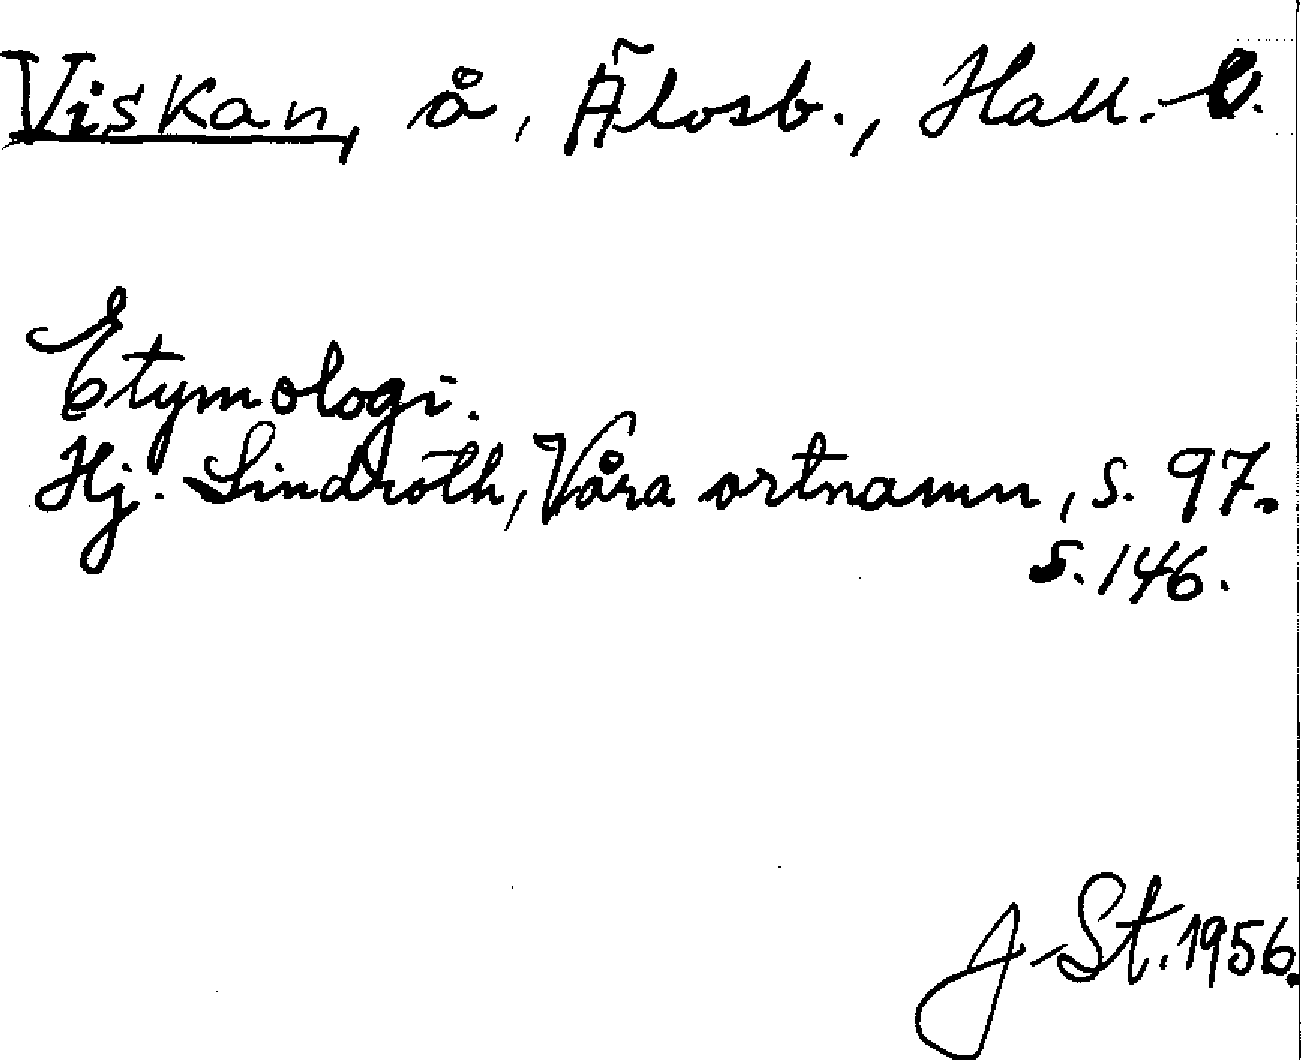 Viskan, å, Älvsb., Hall. l.
Etymologi.
Hj. Lindroth, Våra ortnamn, s. 97.
s. 146.
J. St. 1956.